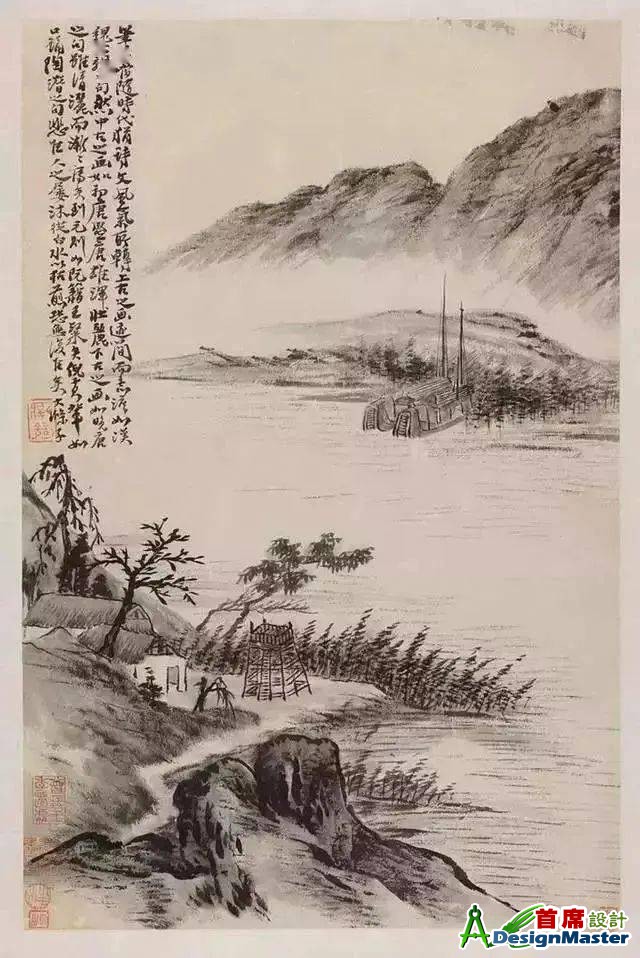 筆當隨時代猶詩文風氣所轉上古之畫迹簡而意淡如漢
魏之句然中古之畫如初唐盛唐雄渾壯麗下古之畫如晚唐
之句雖清灑而漸漸薄矣到元則如阮籍王粲矣倪黃輩如
口誦陶潛之句悲佳人之屢沐從白水以枯煎恐無復佳矣大滌子
首席設計
ADesignMaster